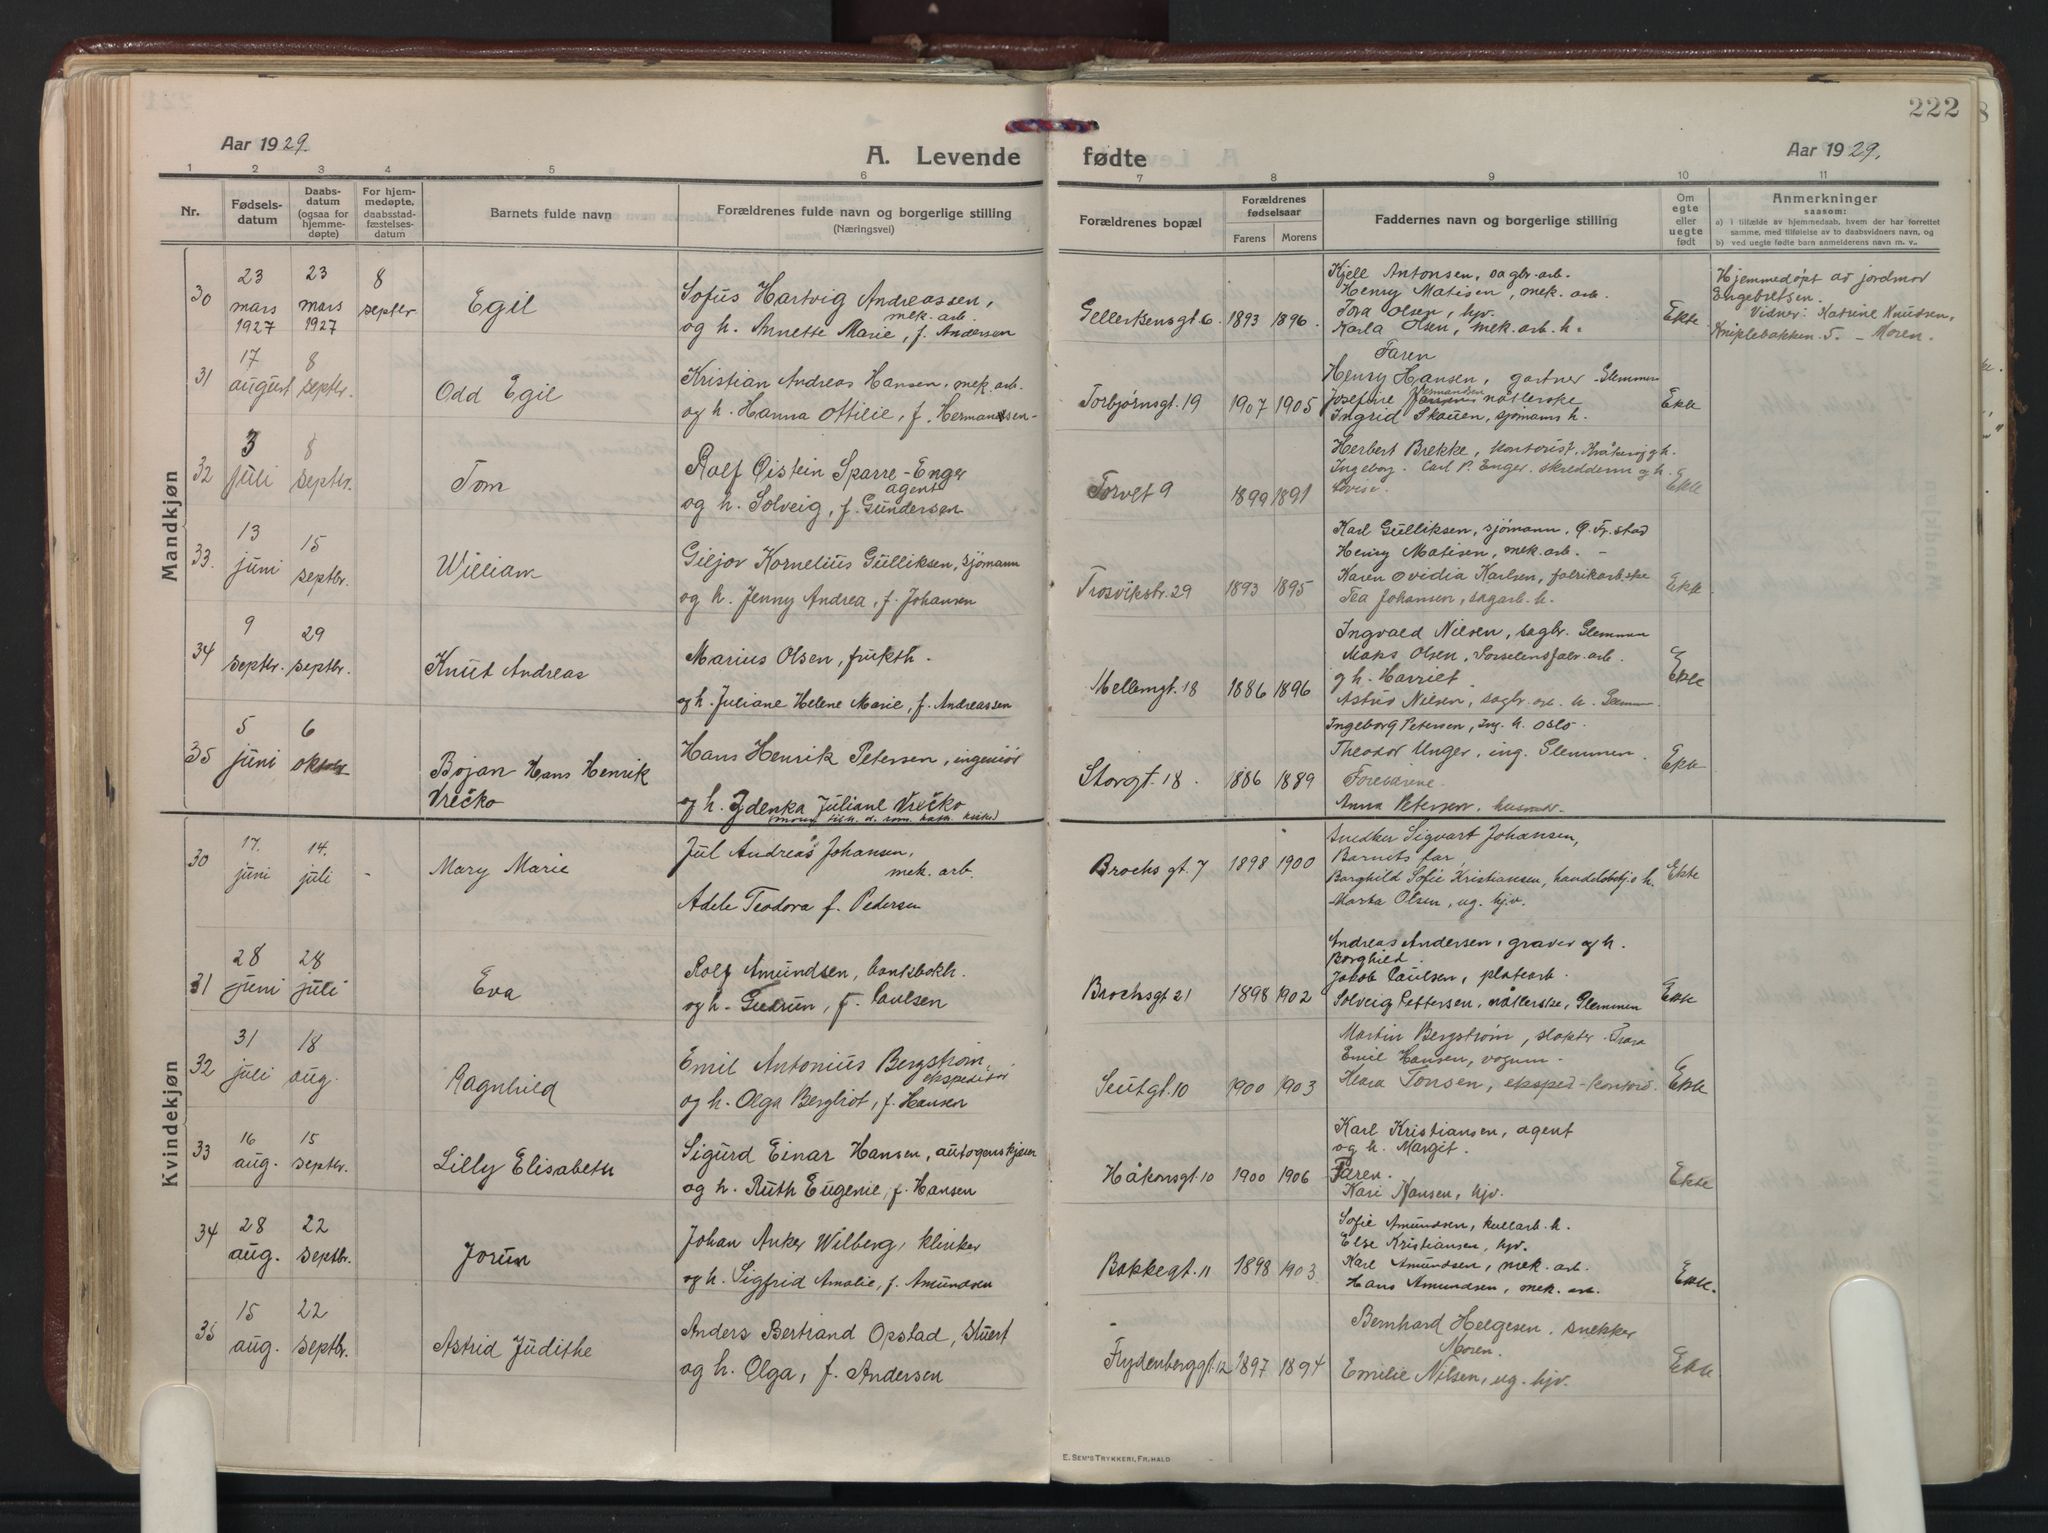 222
Aar 1929.
A. Levende fødte
Aar 1929.
1 2 3 4 5 6 7 8 9 10 11
Nr.
Fødselsdatum
Daabsdatum (ogsaa for hjemmedøpte)
For hjemmedøpte, daabsstadfæstelsesdatum
Barnets fulde navn
Forældrenes fulde navn og borgerlige stilling
(Næringsvei)
Forældrenes bopæl
Forældrenes fødselsaar
Farens Morens
Faddernes navn og borgerlige stilling
Om egte eller uegte født
Anmerkninger
saasom:
a) i tilfælde av hjemmedaab, hvem der har forrettet samme, med tilføielse av to daabsvidners navn, og
b) ved uegte fødte barn anmelderens navn m. v.
Mandkjøn
30
23 mars 1927
23 mars 1927
8 septbr
Egil
Sofus Hartvig Andreassen,
mek. arb.
og h. Annette Marie, f. Andersen
Gellerkensgt. 6
1893 1896
Kjell Antonsen, sagbr. arb.
Henry Matisen, mek. arb.
Tora Olsen, hjv.
Karla Olsen, mek. arb. h.
Ekte
Hjemmedøpt av jordmor
Engebretsen.
Vidner: Katrine Knudsen,
Kniplebakken 5. – Moren.
31
17 august
8 septbr.
Odd Egil
Kristian Andreas Hansen, mek. arb.
og h. Hanna Ottilie, f. Hermansen
Torbjørnsgt. 19
1907 1905
Faren
Henry Hansen, gartner Glemmen
Josefine Hermansen nåtlerske
Ingrid Skauen, sjømanns h.
Ekte
32
3 juli
8 septbr.
Tom
Rolf Øistein Sparre-Enger
agent
og h. Solveig, f. Gundersen
Torvet 9
1899 1891
Herbert Brekke, kontorist, Kråkerøy og h.
Ingeborg. Carl P. Enger, skredderm og h.
Lovise.
Ekte
33.
13 juni
15 septbr.
William
Giljor Kornelius Gulliksen, sjømann
og h. Jenny Andrea, f. Johansen
Trosvikstr. 29
1893 1895
Karl Gulliksen, sjømann, Fr.stad
Henry Matisen, mek. arb. –
Karen Ovidia Karlsen, fabrikarb.ske
Tea Johansen, sagarb. h.
Ekte
34
9 septbr.
29 septbr.
Knut Andreas
Marius Olsen, frukth.
og h. Juliane Helene Marie, f. Andreassen
Mellemgt. 18
1886 1896
Ingvald Nilsen, sagbr. Glemmen
Maks Olsen, arb.
og h. Harriet.
Astrid Nilsen, sagbr. arb. h. Glemmen.
Ekte
35
5 juni
6 oktober
Bojan Hans Henrik
Vrečko
Hans Henrik Petersen, ingeniør
og h. Zdenka Juliane Vrečko
(moren tilh. d. rom. kath. kirke)
Storgt. 18
1886 1889
Ingeborg Petersen, ing. h. Oslo
Theodor Unger, ing. Glemmen.
Foreldrene.
Anna Petersen, husmor.
Ekte
Kvindekjøn
30
17. juni
14. juli
-
Mary Marie
Jul Andreas Johansen,
mek. arb.
Adele Teodora f. Pedersen
Brochsgt. 7
1898 1900
Snedker Sigvart Johansen,
Barnets far,
Borghild Sofie Kristiansen, handelsbetj.s h.
Marta Olsen, ug. hj.v.
Ekte
31
28 juni
28 juli
Eva
Rolf Amundsen, banksbokh.
og h. Gudrun, f. Paulsen
Brochsgt 21
1898 1902
Andreas Andersen, graver og h.
Borghild.
Jakob Paulsen, platearb.
Solveig Pettersen, nåtlerske, Glemmen
Ekte
32
31 juli
18 aug.
Ragnhild
Emil Antonius Bergstrøm,
ekspeditør
og h. Olga Bergliot, f. Hansen
Seutgt. 10
1900 1903
Martin Bergstrøm, slakter. Trara
Emil Hansen, vognm. –
Klara Tonsen, eksped.-kontord.
Ekte
33
16 aug.
15 septbr.
Lilly Elisabeth
Sigurd Einar Hansen, autogenskjærer
og h. Ruth Eugenie, f. Hansen
Håkonsgt. 10
1900 1906
Karl Kristiansen, agent
og h. Margit.
Faren.
Kari Hansen, hjv.
Ekte
34
28 aug.
22 septbr.
Jorun
Johan Anker Wilberg, klinker
og h. Sigfrid Amalie, f. Amundsen
Bakkegt. 11
1898 1903.
Sofie Amundsen, kullarb. h.
Else Kristiansen, hjv.
Karl Amundsen, mek. arb.
Hans Amundsen, mek. arb.
Ekte.
35
15 aug.
22 septbr.
Astrid Judithe
Anders Bertrand Opstad, stuert
og h. Olga, f. Andersen
Frydenberggt. 12
1897 1894
Bernhard Helgesen, snekker
Moren.
Emilie Nilsen, ug. hjv.
Ekte
E. SEM'S TRYKKERI, FR.HALD